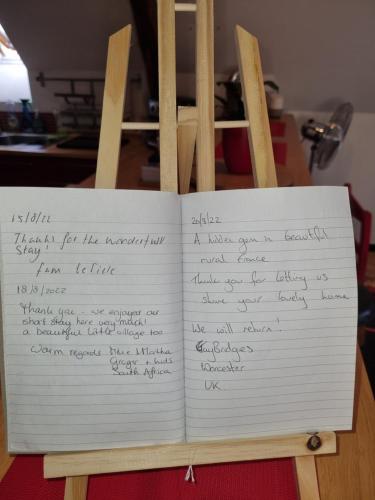 15/8/22
Thanks for the wonderfull
Stay!
fam
18/8/2022
Thank you - we enjoyed our
short stay here very much!
a beautiful little village too
Warm regards Martha
+ kids
South Africa
20/8/22
A hidden gem in beautiful
rural France
Thank you for letting us
share your lovely home
We will return!
Bridges
Worcester
UK